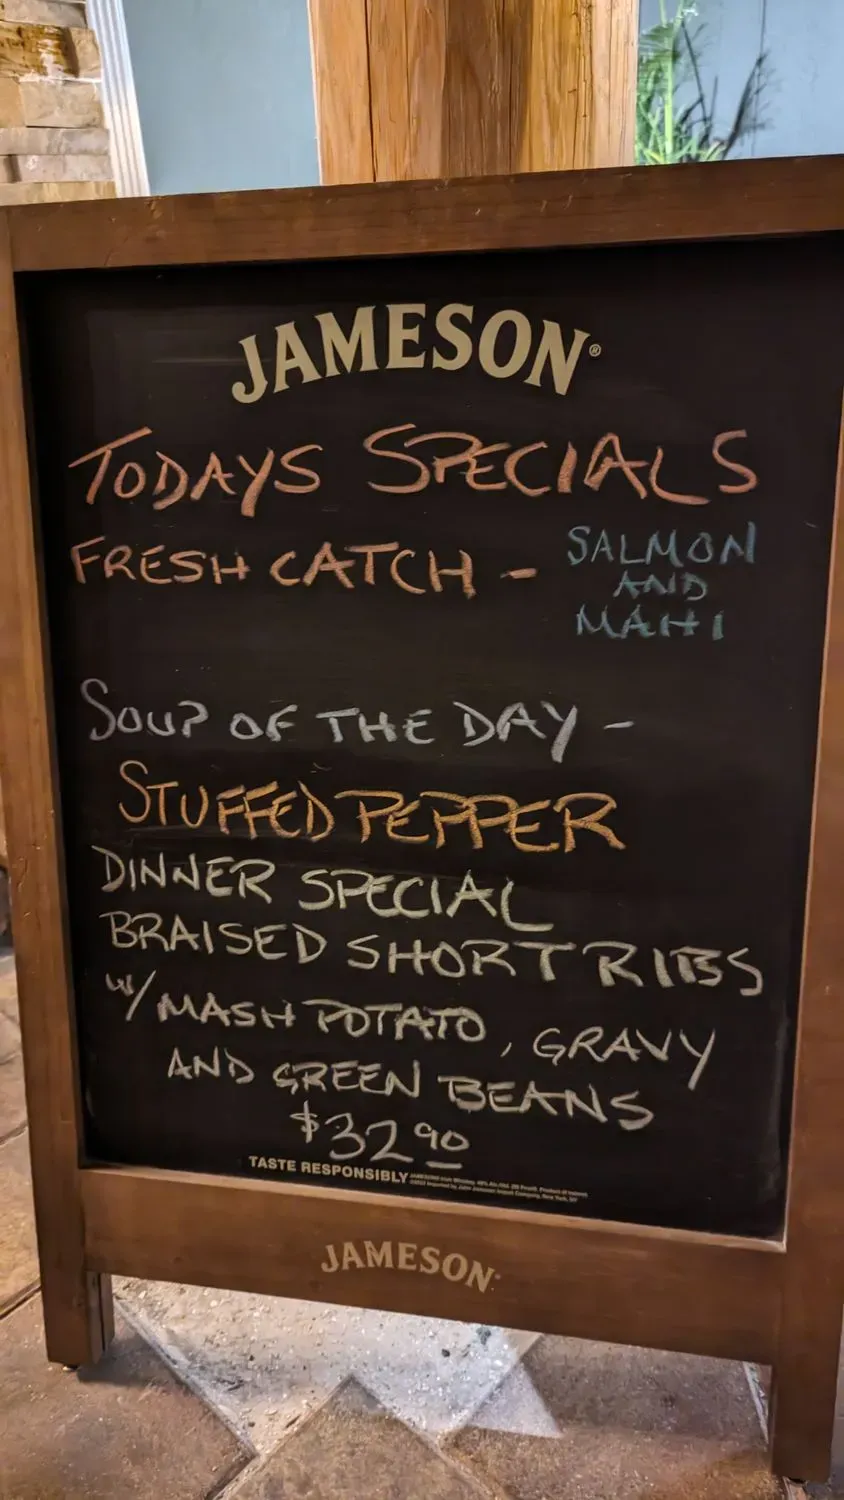 JAMESON®
TODAYS SPECIALS
FRESH CATCH - SALMON
AND
MAHI
SOUP OF THE DAY -
STUFFED PEPPER
DINNER SPECIAL
BRAISED SHORT RIBS
W/ MASH POTATO, GRAVY
AND GREEN BEANS
$32 90
TASTE RESPONSIBLY
JAMESON